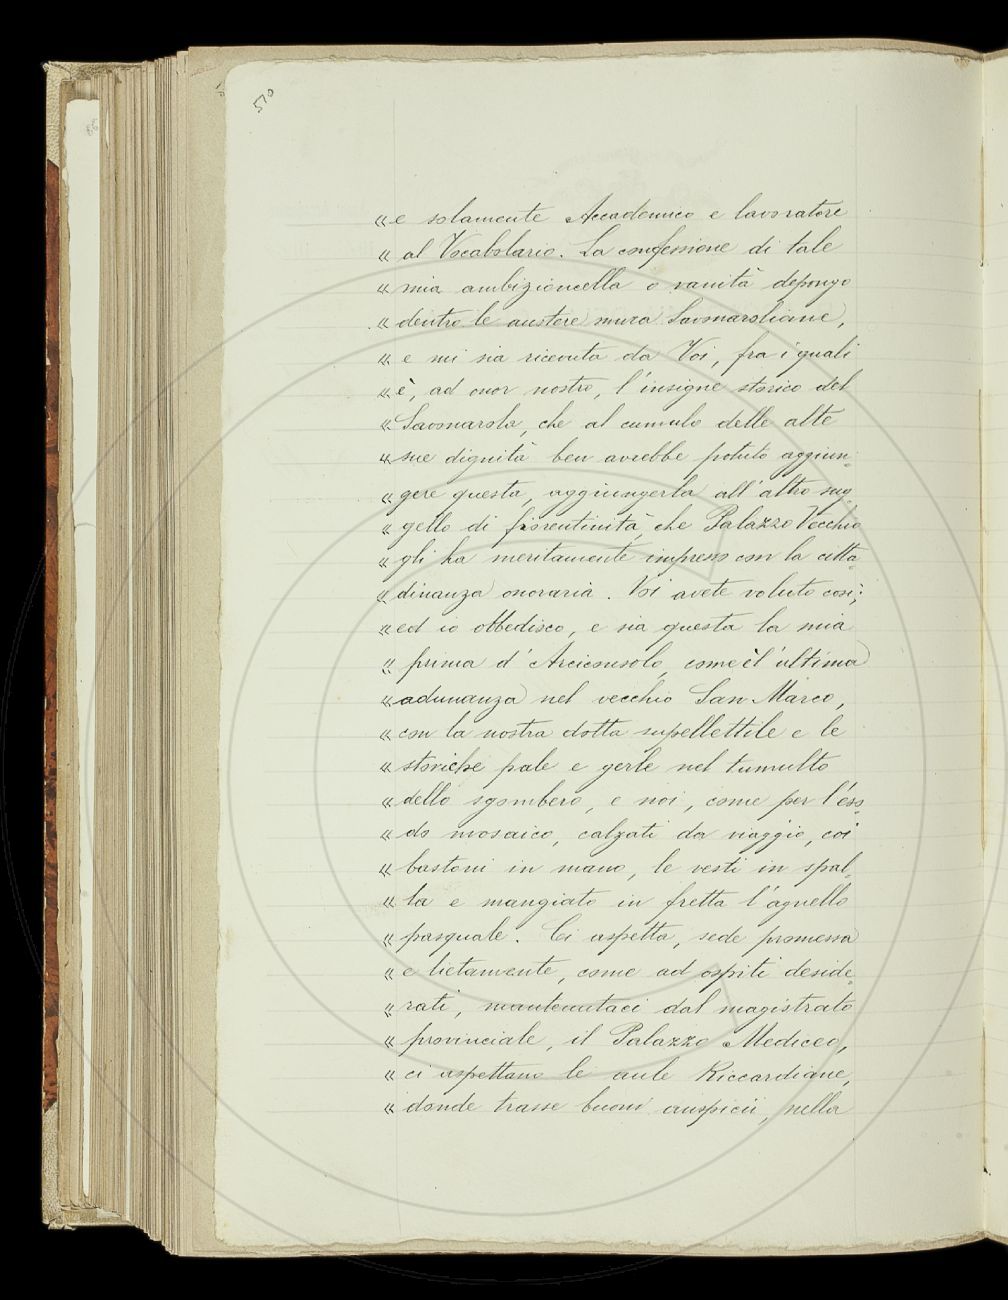 510
« e solamente Accademico e lavoratore
« al Vocabolario. La confessione di tale
« mia ambizioncella o vanità depongo
« dentro le austere mura Savonaroliane,
« e mi sia ricevuta da Voi, fra i quali
« è, ad onor nostro, l'insigne storico del
« Savonarola, che al cumulo delle alte
« sue dignità ben avrebbe potuto aggiun-
« gere questa, aggiungerla all'altro sug-
« gello di fiorentinità, che Palazzo Vecchio
« gli ha meritamente impresso con la citta-
« dinanza onoraria. Voi avete voluto così;
« ed io obbedisco, e sia questa la mia
« prima d'Arciconsolo, come è l'ultima
« adunanza nel vecchio San Marco,
« con la nostra dotta supellettile e le
« storiche pale e gerle nel tumulto
« dello sgombero, e noi, come per l'éso-
« do mosaico, calzati da viaggio, coi
« bastoni in mano, le vesti in spal-
« la e mangiato in fretta l'agnello
« pasquale. Ci aspetta, sede promessa
« e lietamente, come ad ospiti deside-
« rati, mantenutaci dal magistrato
« provinciale, il Palazzo Mediceo,
« ci aspettano le aule Riccardiane,
« donde trasse buoni auspicii, nella